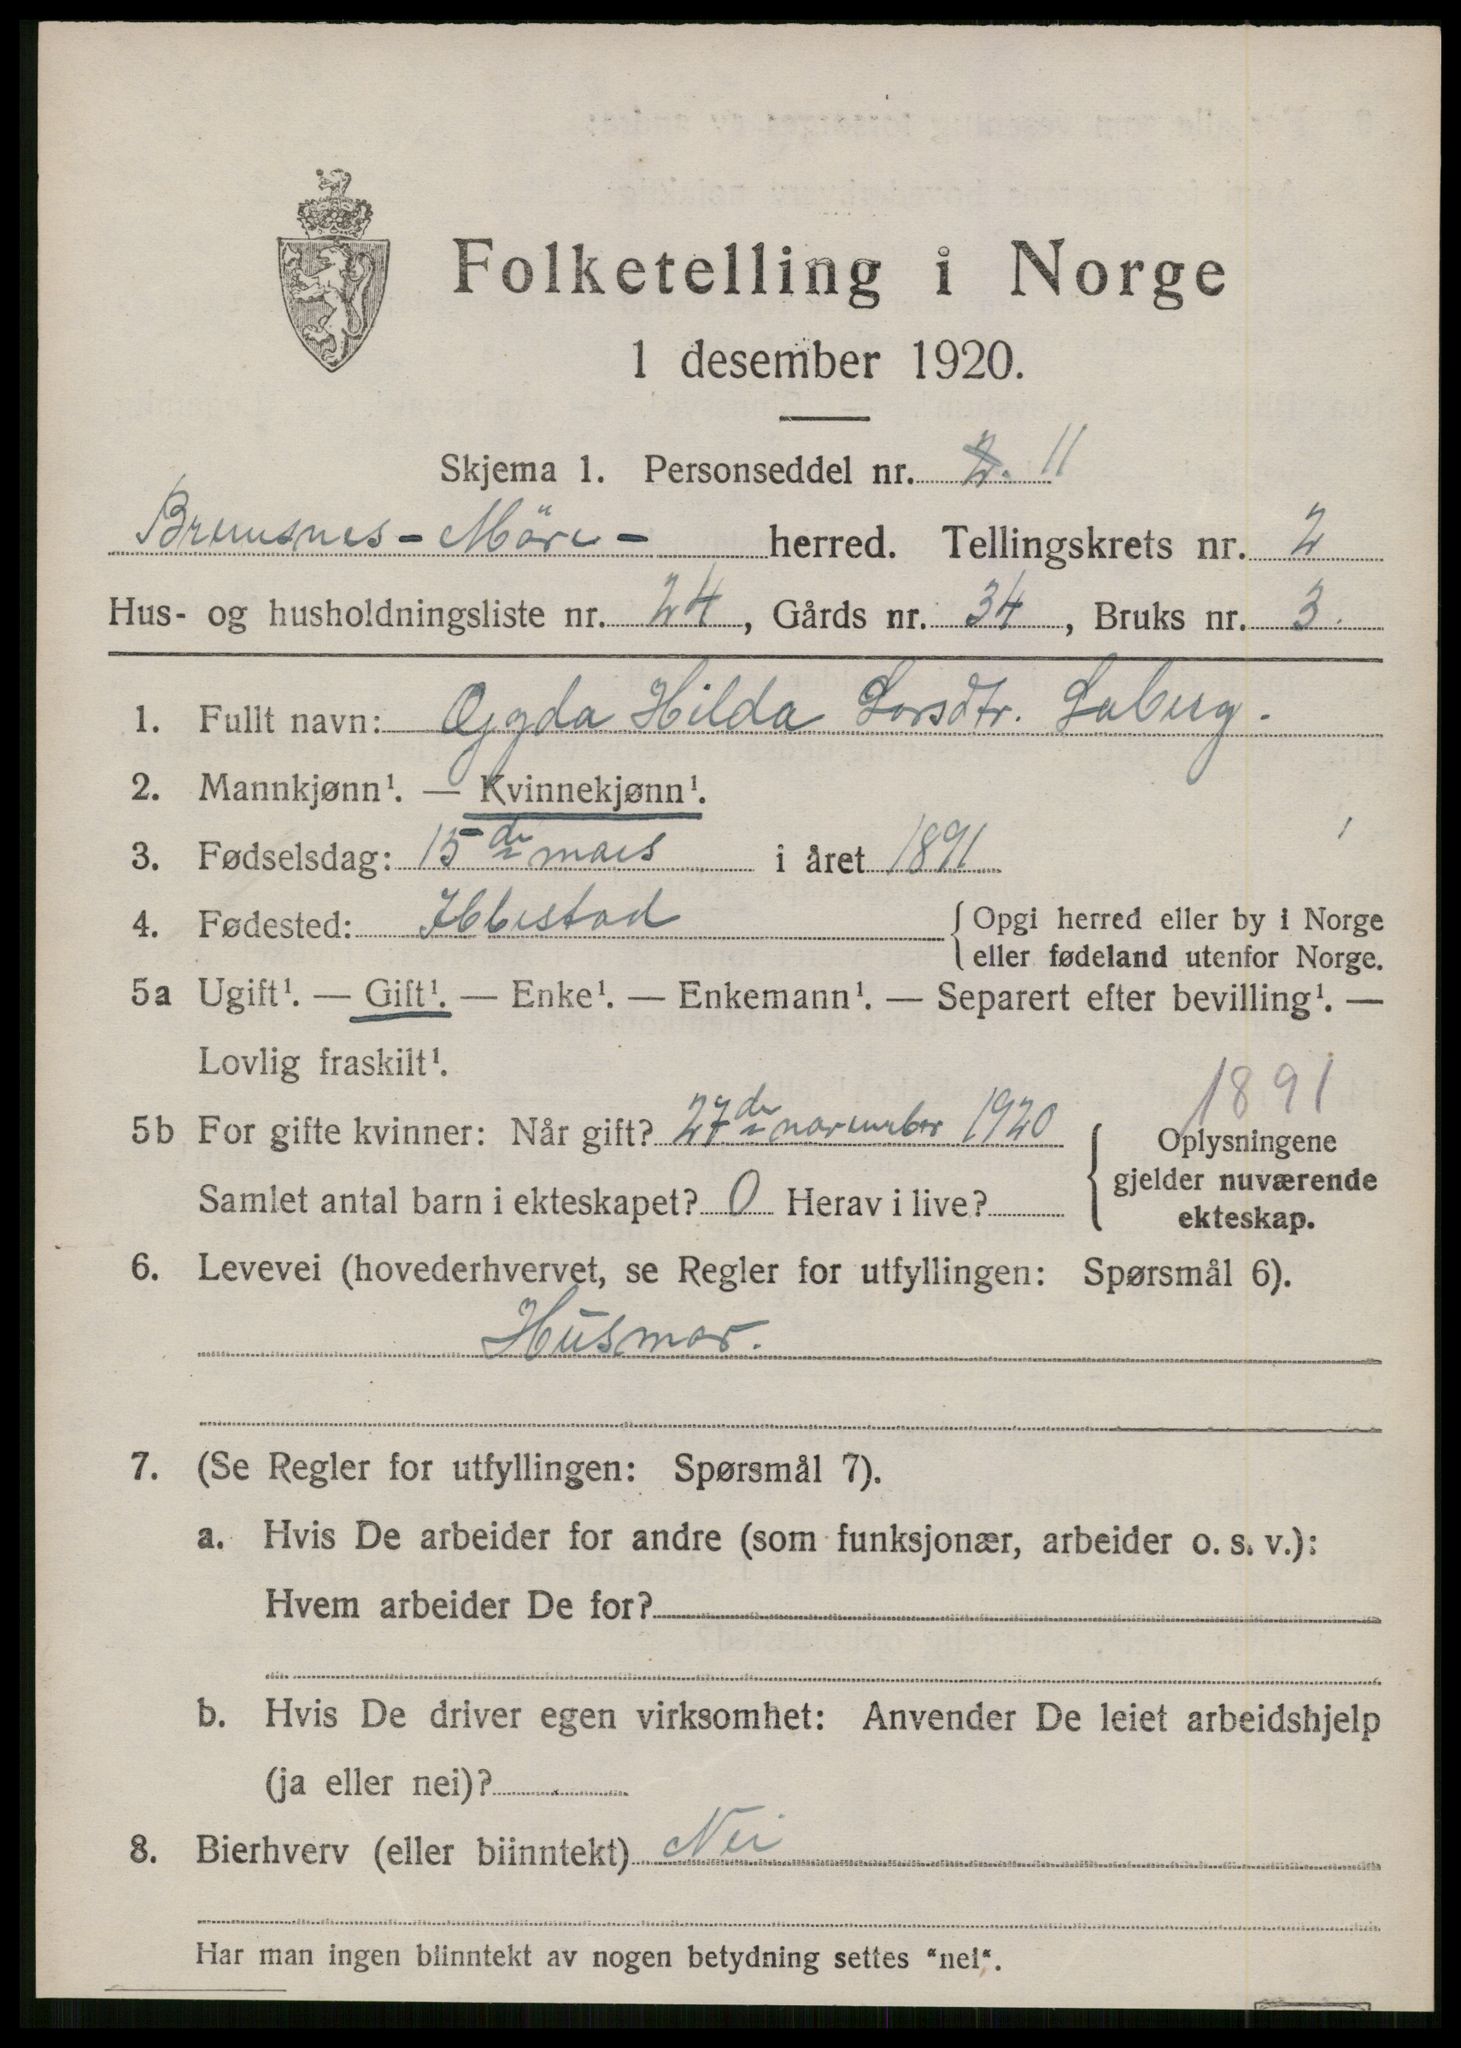 Folketelling i Norge
1 desember 1920.
Skjema 1. Personseddel nr. 2. 11
Bremsnes - Möre - herred. Tellingskrets nr. 2
Hus- og husholdningsliste nr. 24, Gårds nr. 34, Bruks nr. 3.
1. Fullt navn: Hilda Larsdtr. Laberg.
2. Mannkjønn¹. — Kvinnekjønn¹.
3. Fødselsdag: 15de mars i året 1891
4. Fødested: Ibbestad { Opgi herred eller by i Norge
eller fødeland utenfor Norge.
5a Ugift¹. — Gift¹. — Enke¹. — Enkemann¹. — Separert efter bevilling¹. —
Lovlig fraskilt¹.
1891
5b For gifte kvinner: Når gift? 27de november 1920
Samlet antal barn i ekteskapet? 0 Herav i live?
{ Oplysningene
gjelder nuværende
ekteskap.
6. Levevei (hovederhvervet, se Regler for utfyllingen: Spørsmål 6).
Husmor.
7. (Se Regler for utfyllingen: Spørsmål 7).
a. Hvis De arbeider for andre (som funksjonær, arbeider o. s. v.):
Hvem arbeider De for?
b. Hvis De driver egen virksomhet: Anvender De leiet arbeidshjelp
(ja eller nei)?
8. Bierhverv (eller biinntekt) Nei
Har man ingen biinntekt av nogen betydning settes "nei".